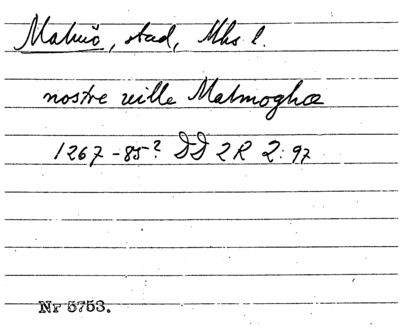 Malmö, stad, Mhs l.
nostre ville Malmoghæ
1267-85? DD 2R 2:97
Nr 5753.